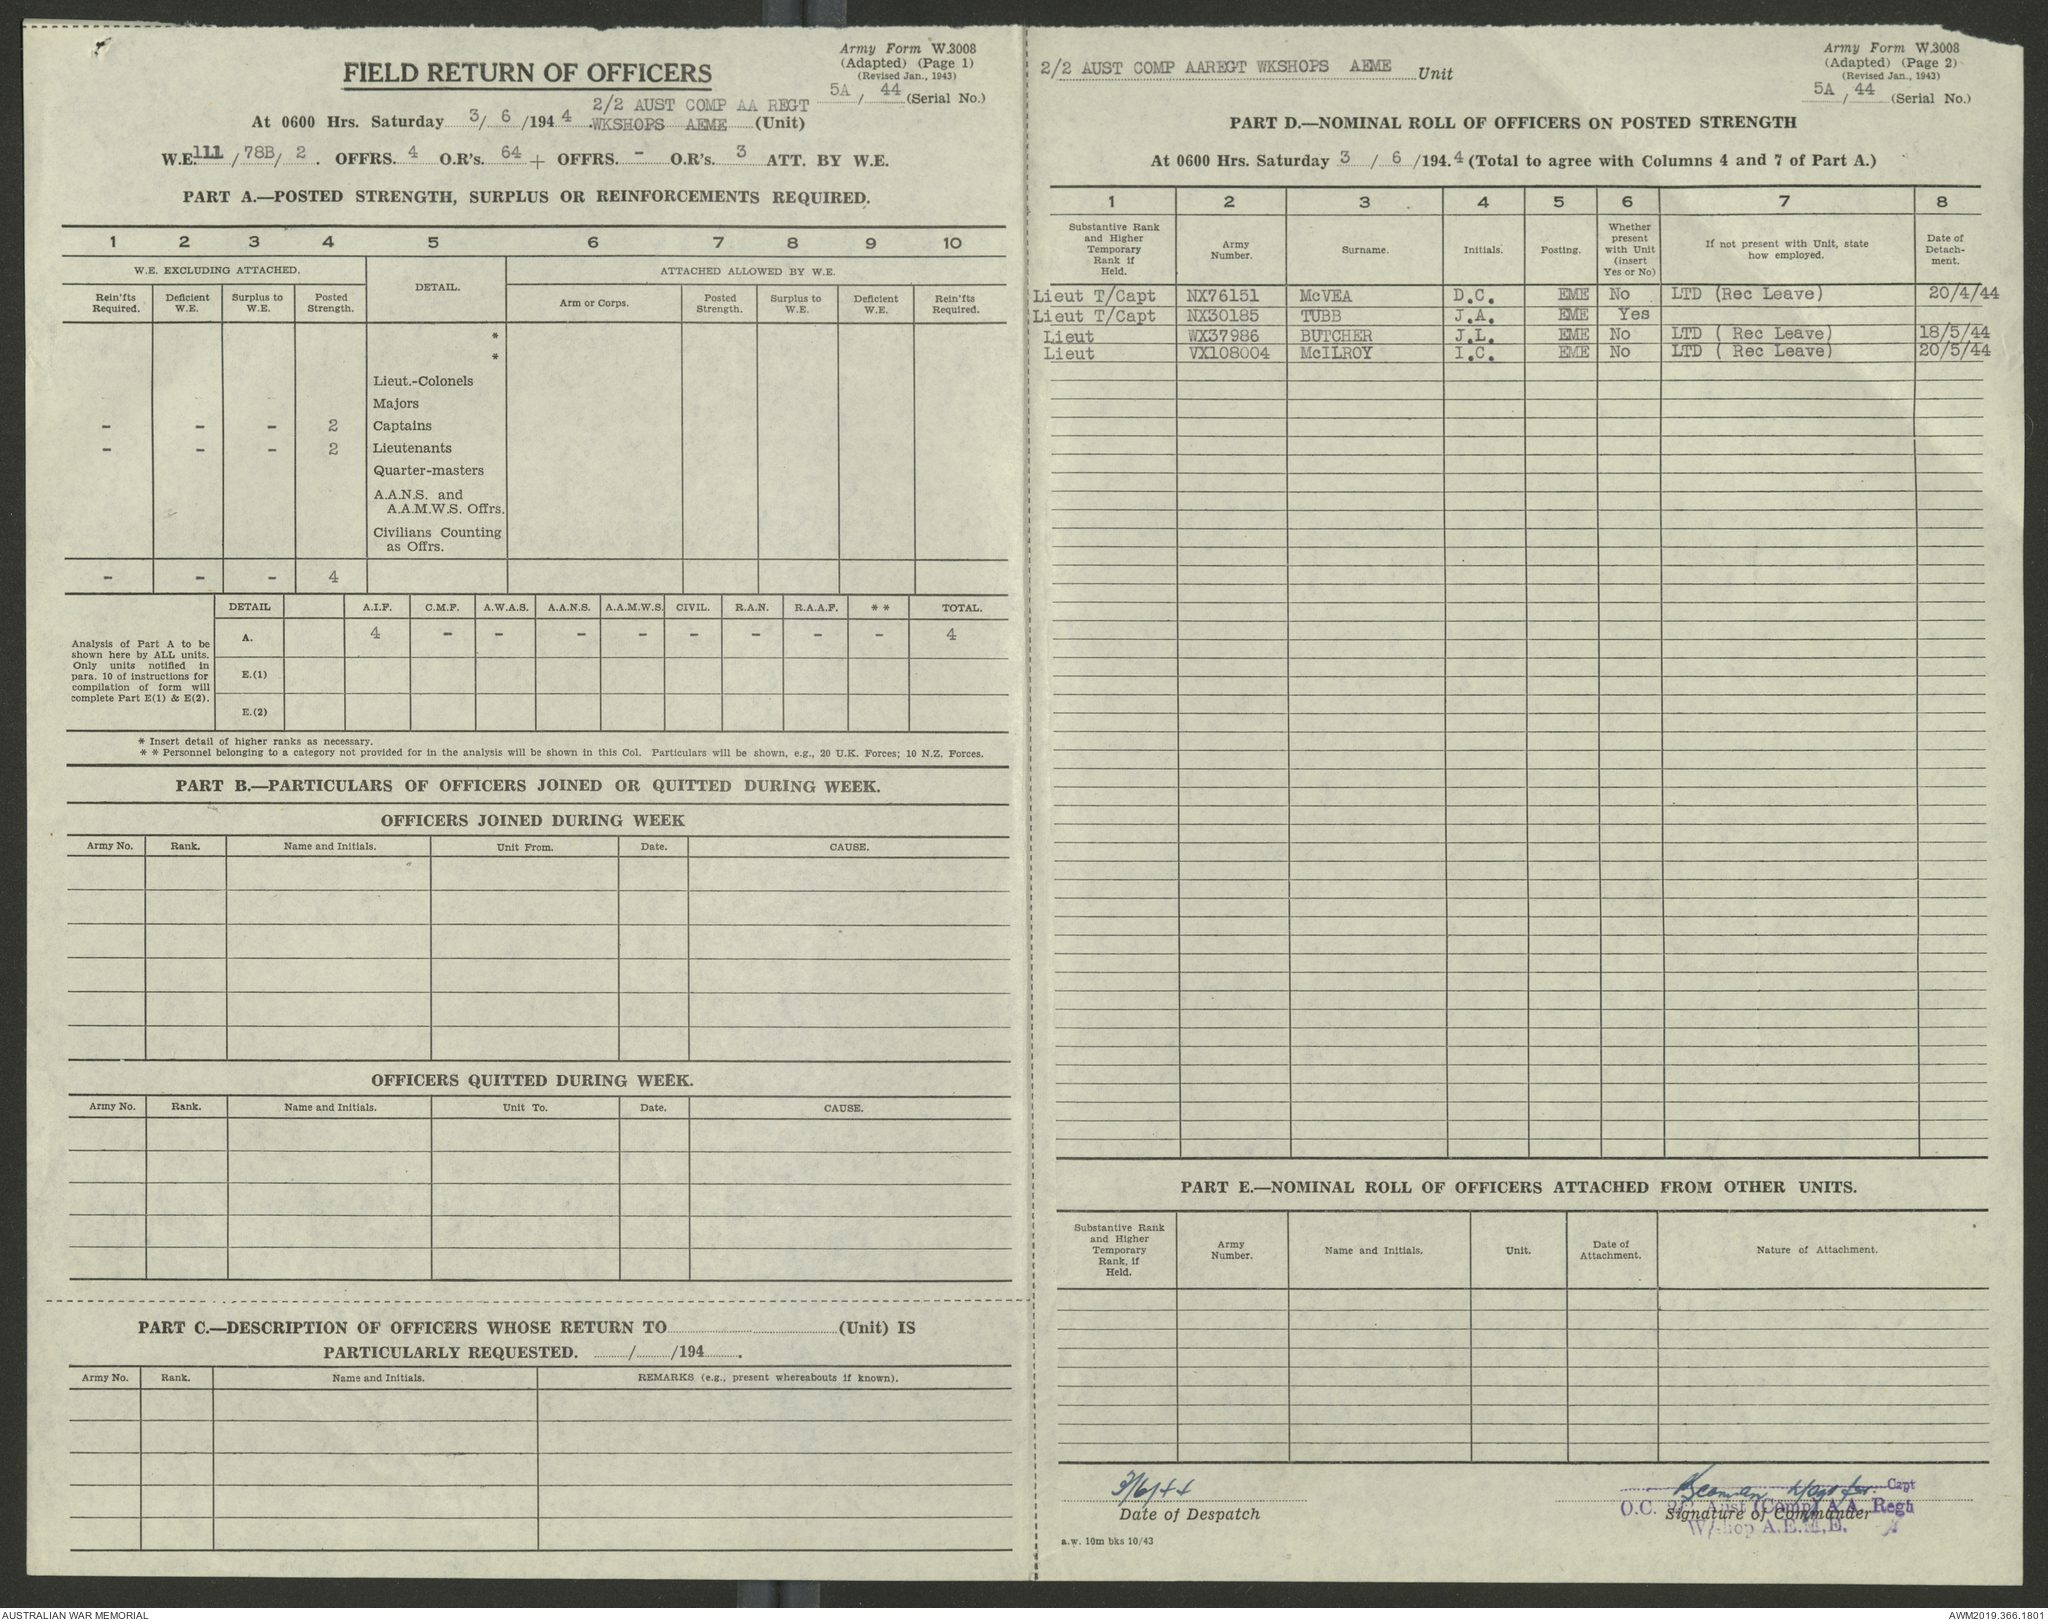 Army Form W.3008
(Adapted) (Page 1)
(Revised Jan., 1943)
5A / 44 (Serial No.)
FIELD RETURN OF OFFICERS
2/2 AUST COMP AA REGT
At 0600 Hrs. Saturday 3/ 6 /194 4 WKSHOPS AEME (Unit)
W.E. 111 / 78B / 2 . OFFRS. 4 O.R's. 64 + OFFRS. - O.R's. 3 ATT. BY W.E.
PART A.—POSTED STRENGTH, SURPLUS OR REINFORCEMENTS REQUIRED.
1 2 3 4 5 6 7 8 9 10
W.E. EXCLUDING ATTACHED. DETAIL. ATTACHED ALLOWED BY W.E.
Rein'fts Required. Deficient W.E. Surplus to W.E. Posted Strength. Arm or Corps. Posted Strength. Surplus to W.E. Deficient W.E. Rein'fts Required.
*
*
Lieut.-Colonels
Majors
- - - 2 Captains
- - - 2 Lieutenants
Quarter-masters
A.A.N.S. and
A.A.M.W.S. Offrs.
Civilians Counting
as Offrs.
- - - 4
DETAIL A.I.F. C.M.F. A.W.A.S. A.A.N.S. A.A.M.W.S. CIVIL. R.A.N. R.A.A.F. * * TOTAL.
A. 4 - - - - - - - - 4
E.(1)
E.(2)
Analysis of Part A to be
shown here by ALL units.
Only units notified in
para. 10 of instructions for
compilation of form will
complete Part E(1) & E(2).
* Insert detail of higher ranks as necessary.
* * Personnel belonging to a category not provided for in the analysis will be shown in this Col. Particulars will be shown, e.g., 20 U.K. Forces; 10 N.Z. Forces.
PART B.—PARTICULARS OF OFFICERS JOINED OR QUITTED DURING WEEK.
OFFICERS JOINED DURING WEEK
Army No. Rank. Name and Initials. Unit From. Date. CAUSE.
OFFICERS QUITTED DURING WEEK.
Army No. Rank. Name and Initials. Unit To. Date. CAUSE.
PART C.—DESCRIPTION OF OFFICERS WHOSE RETURN TO (Unit) IS
PARTICULARLY REQUESTED. / /194 .
Army No. Rank. Name and Initials. REMARKS (e.g., present whereabouts if known).
Army Form W.3008
(Adapted) (Page 2)
(Revised Jan., 1943)
5A / 44 (Serial No.)
2/2 AUST COMP AAREGT WKSHOPS AEME Unit
PART D.—NOMINAL ROLL OF OFFICERS ON POSTED STRENGTH
At 0600 Hrs. Saturday 3 / 6 /194.4 (Total to agree with Columns 4 and 7 of Part A.)
1 2 3 4 5 6 7 8
Substantive Rank and Higher Temporary Rank if Held. Army Number. Surname. Initials. Posting. Whether present with Unit (insert Yes or No) If not present with Unit, state how employed. Date of Detach-ment.
Lieut T/Capt NX76151 McVEA D.C. EME No LTD (Rec Leave) 20/4/44
Lieut T/Capt NX30185 TUBB J.A. EME Yes
Lieut WX37986 BUTCHER J.L. EME No LTD ( Rec Leave) 18/5/44
Lieut VX108004 McILROY I.C. EME No LTD ( Rec Leave) 20/5/44
PART E.—NOMINAL ROLL OF OFFICERS ATTACHED FROM OTHER UNITS.
Substantive Rank and Higher Temporary Rank, if Held. Army Number. Name and Initials. Unit. Date of Attachment. Nature of Attachment.
3/6/44
Date of Despatch
Capt
O.C. 2/2 Aust (Comp) A.A. Regt
Signature of Commander
W/shop A.E.M.E.
a.w. 10m bks 10/43
AUSTRALIAN WAR MEMORIAL
AWM2019.366.1801